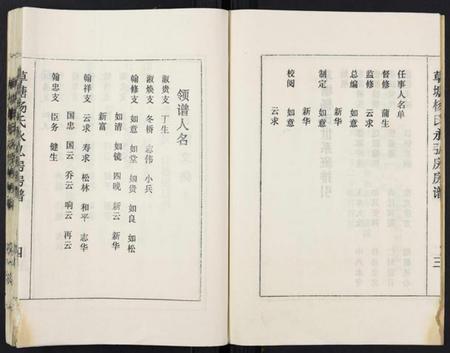 草塘杨氏永弘房房谱
三
任事人名单
督修 蒲生
监修 云求
总编 如意
新华
制定 如意
新华
校阅 如意
云求
领谱人名
淑贵支 丁生
淑焕支 冬桥 志伟 小兵
翰修支 如意 如堂 如贵 如良 如松
如清 如镜 四晚 新华
新富
翰祥支 云求 寿求 松林 和平 志华
国忠 国云 乔云 响云 再云
翰忠支 臣务 健生
草塘杨氏永弘房房谱
四